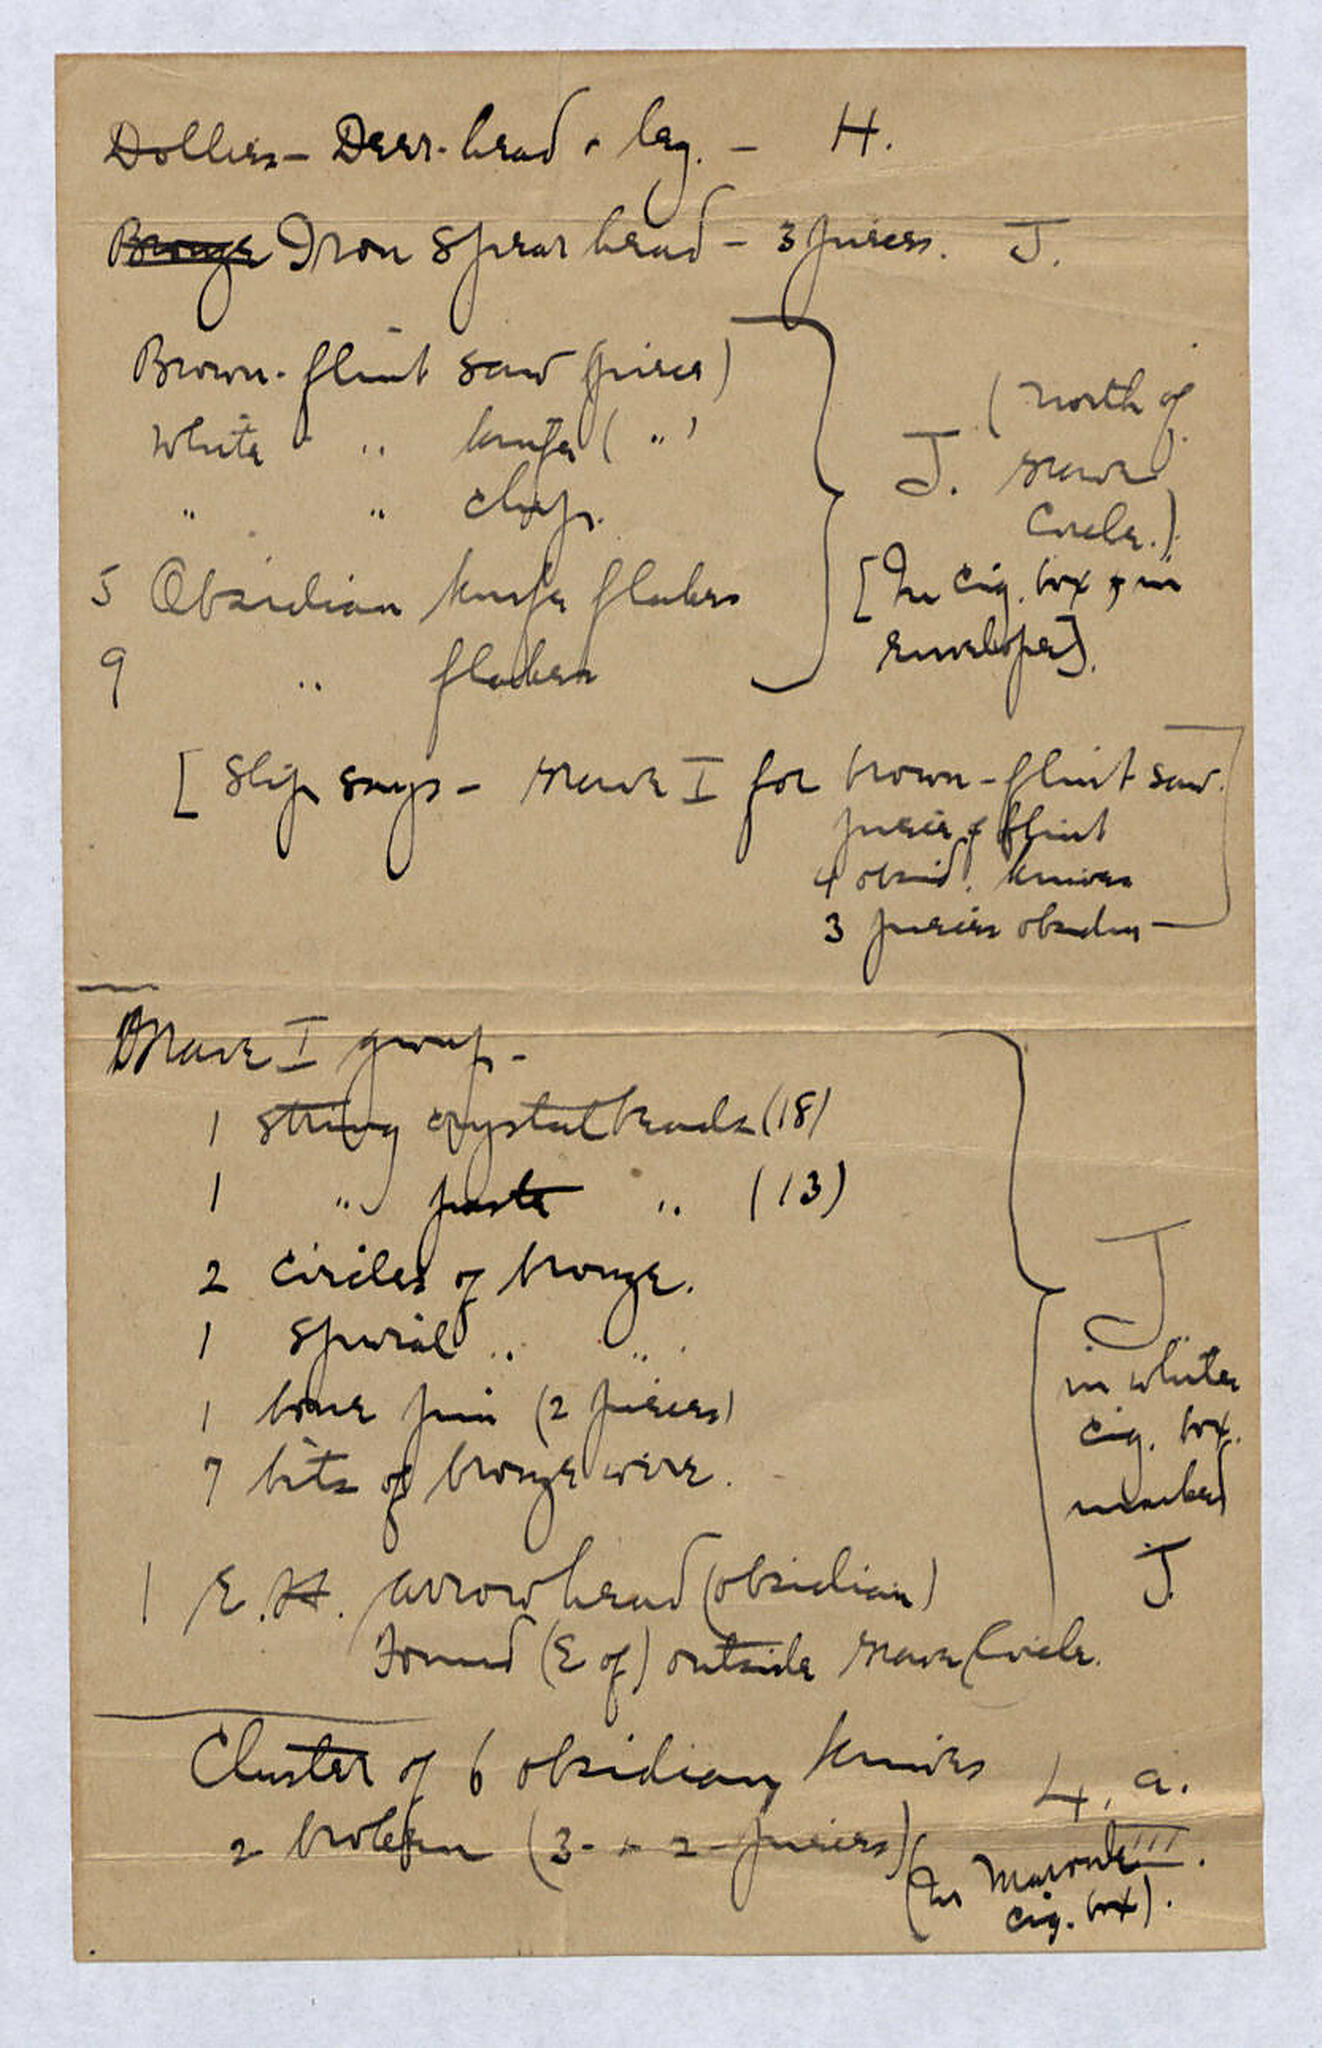 Dollies - Deer-head & leg. - H.
Bronze Iron spear head - 3 pieces. J.
Brown-flint saw (piece)
White - " knife ( " )
" " chip.
5 Obsidian knife flakes
9 " flakes
J. (north of
Grave
Circle.)
[In cig. box & in
envelope].
[Slip says - Grave I for brown-flint saw.
piece of flint
4 obsid. knives
3 pieces obsidian
Grave I group -
1 string crystal beads (18)
1 " paste " (13)
2 circles of bronze.
1 spiral " "
1 bone pin (2 pieces)
7 bits of bronze wire.
J
in white
cig. box.
marked
J.
1 E.H. arrowhead (obsidian)
Found (E of) outside Grave Circle.
Cluster of 6 obsidian knives 4, a.
2 broken (3- & 2- pieces)
(In III.
cig. box).